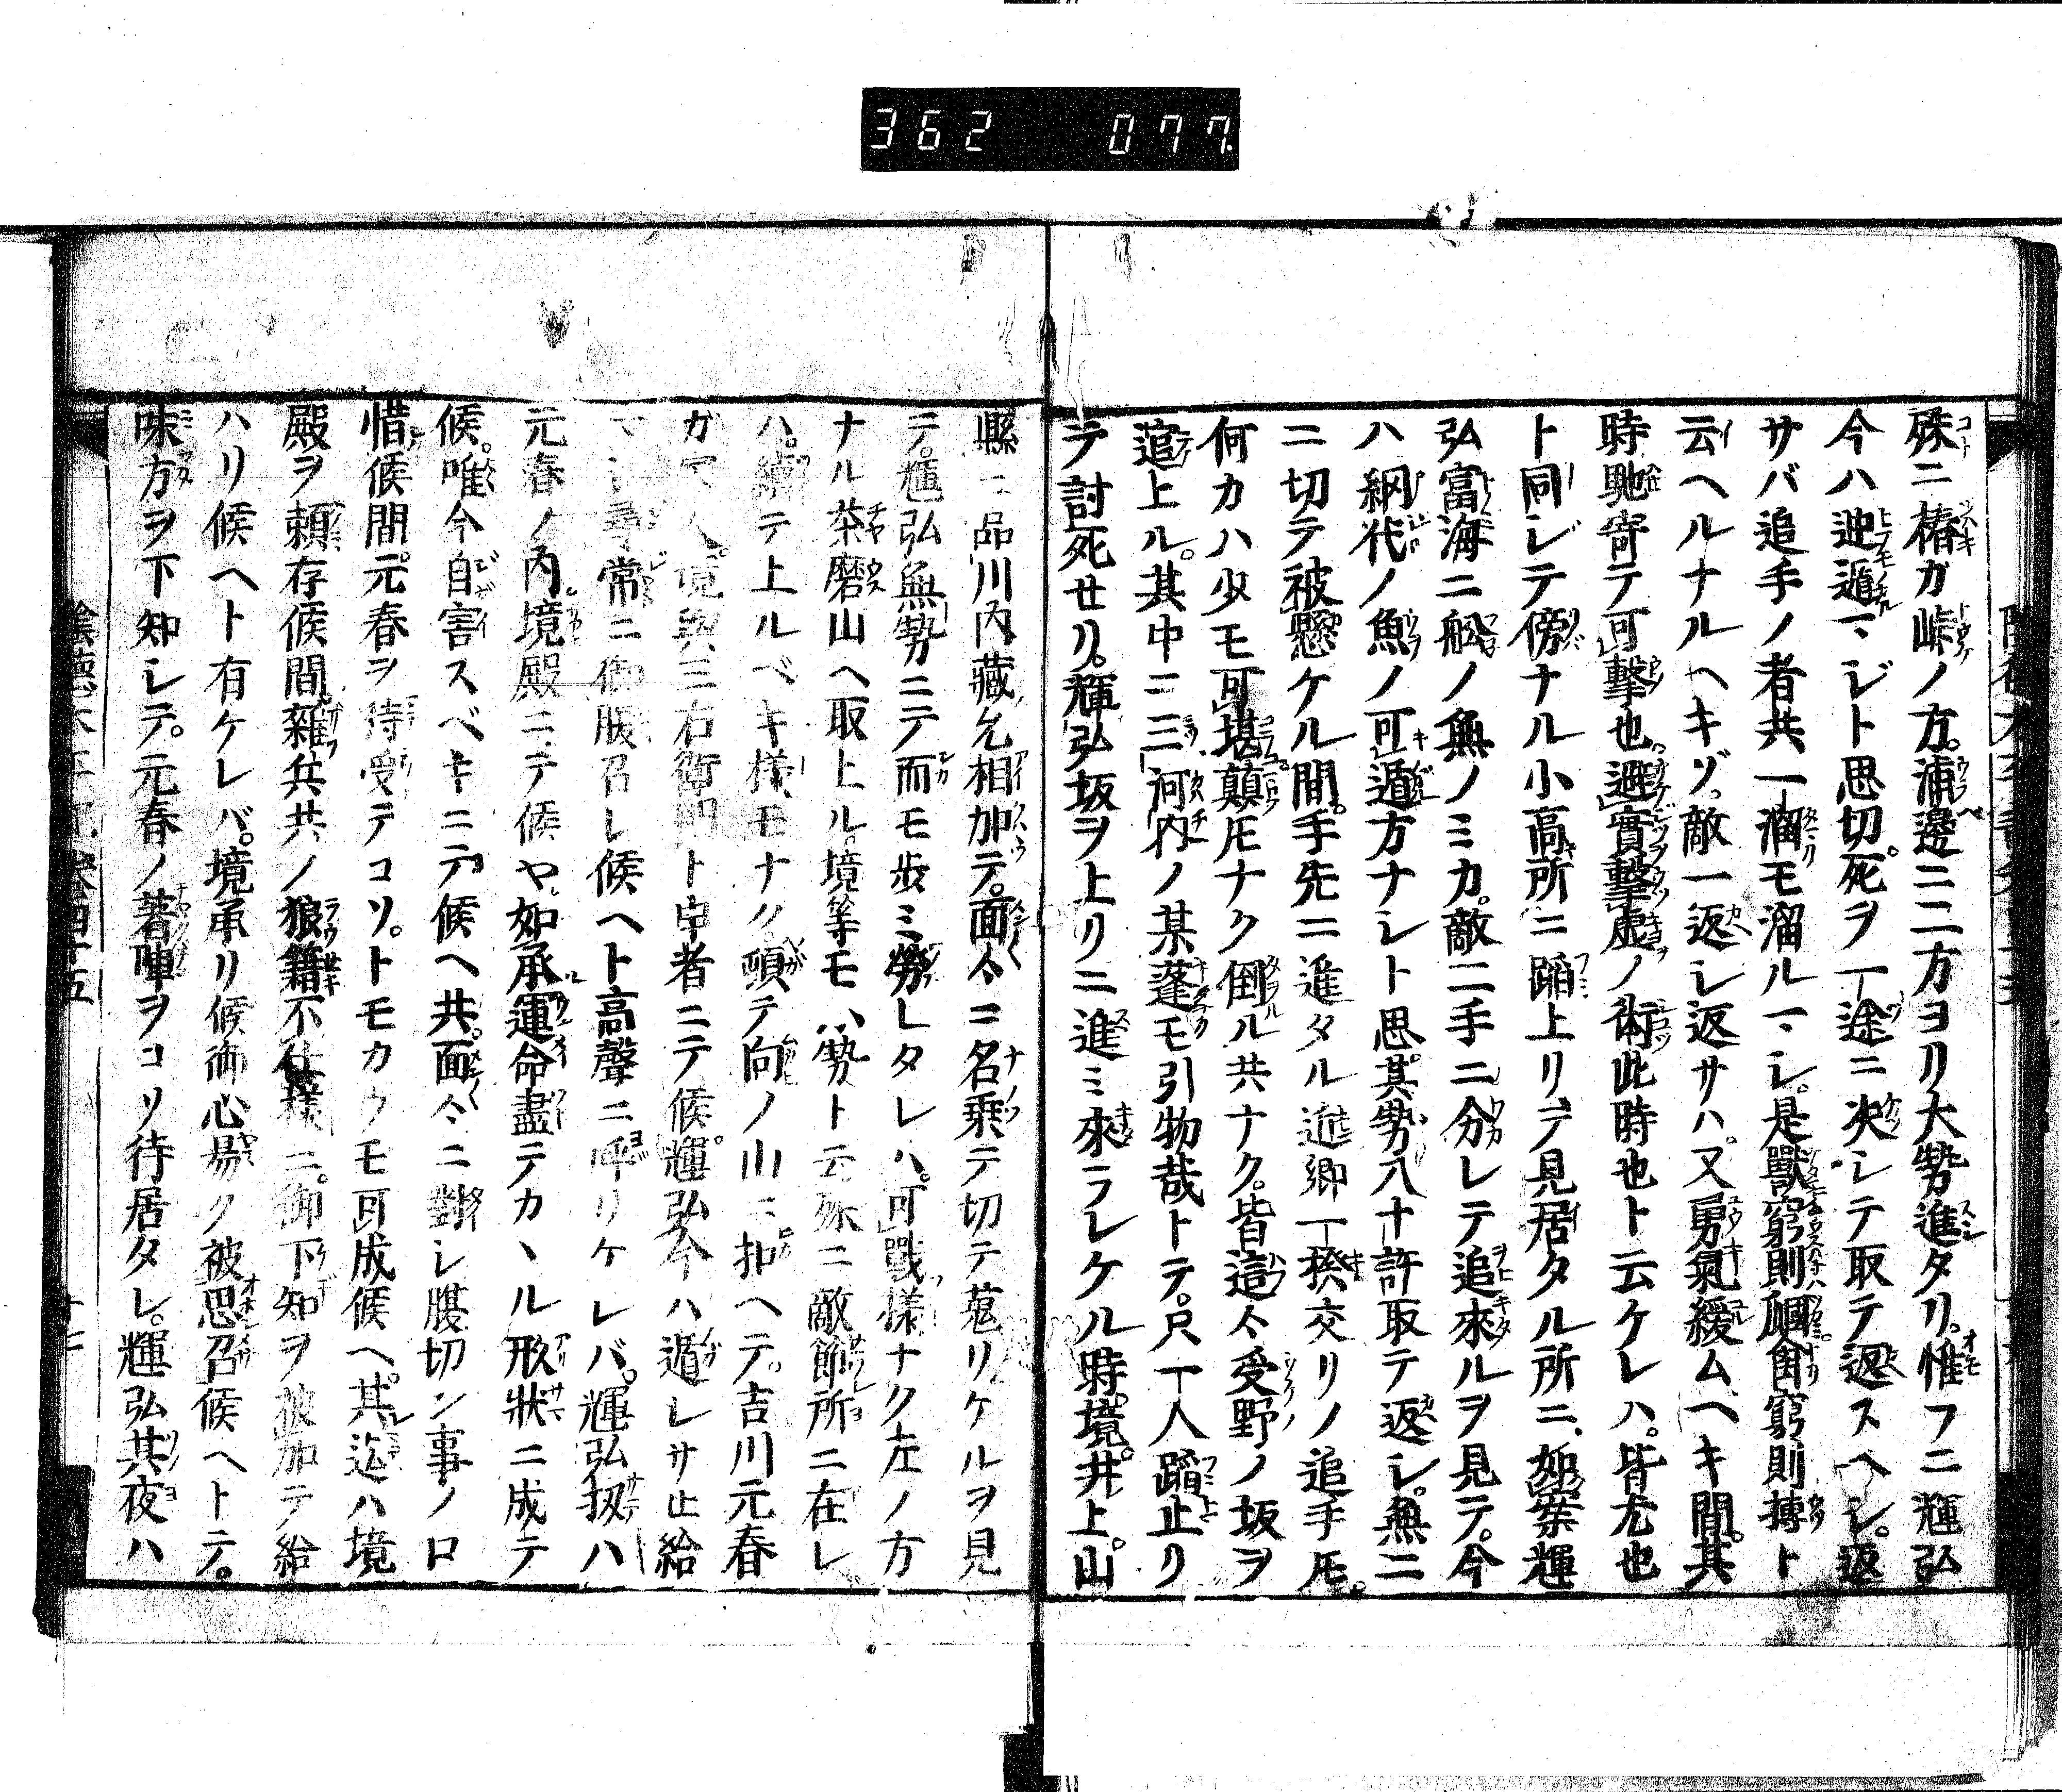 362 077
殊ニ椿ガ峠ノ方。浦邊ニ二方ヨリ大勢進タリ。惟フニ輝弘
今ハ迯遁マジト思切。死ヲ一途ニ决シテ取テ返スヘシ。返
サバ追手ノ者共一溜モ溜ルマシ。是獸窮則囓禽窮則搏ト
云ヘルナルヘキゾ。敵一返シ返サハ。又勇氣緩ムヘキ間。其
時馳寄テ可撃也。避實撃虚ノ術此時也ト云ケレハ。皆尤也
ト同シテ傍ナル小高所ニ蹈上リテ見居タル所ニ、如案輝
弘富海ニ舩ノ無ノミカ。敵二手ニ分レテ追來ルヲ見テ。今
ハ網代ノ魚ノ可遁方ナシト思。其勢八十許取テ返シ。無二
ニ切テ被懸ケル間。手先ニ進タル進卿一揆交リノ追手𪜈。
何カハ少モ可堪。顛𪜈ナク倒ル共ナク。皆這々受野ノ坂ヲ
追上ル。其中ニ三河内ノ某蓬モ引物哉トテ。只一人蹈止リ
テ討死セリ。輝弘坂ヲ上リニ進ミ來ラレケル時。境。井上。山
縣ニ品川内藏允相加テ。面々ニ名乗テ切テ蒐リケルヲ見
テ。輝弘無勢ニテ而モ歩ミ勞レタレハ。可戰様ナク左ノ方
ナル茶磨山ヘ取上ル。境等モ小勢ト云殊ニ敵節所ニ在レ
ハ。續テ上ルベキ様モナク頓テ向ノ山ニ扣ヘテ。吉川元春
ガ人。境與三右衛門ト申者ニテ候。輝弘今ハ遁レサせ給
尋常ニ御腹召レ候ヘト高聲ニ呼リケレバ。輝弘扨ハ
元春ノ内。境殿ニテ候ヤ。如承運命盡テカヽル形狀ニ成テ
候。唯今自害スベキニテ候ヘ共。面々ニ對シ腹切ン事ノ口
惜候間。元春ヲ待受テコソ。トモカウモ可成候ヘ。其迄ハ境
殿ヲ頼存候間。雜兵共ノ狼籍不仕樣ニ。御下知ヲ被加テ給
ハリ候ヘト有ケレバ。境承リ候御心易ク被思召候ヘトテ。
味方ヲ下知シテ。元春ノ著陣ヲコソ待居タレ。輝弘其夜ハ